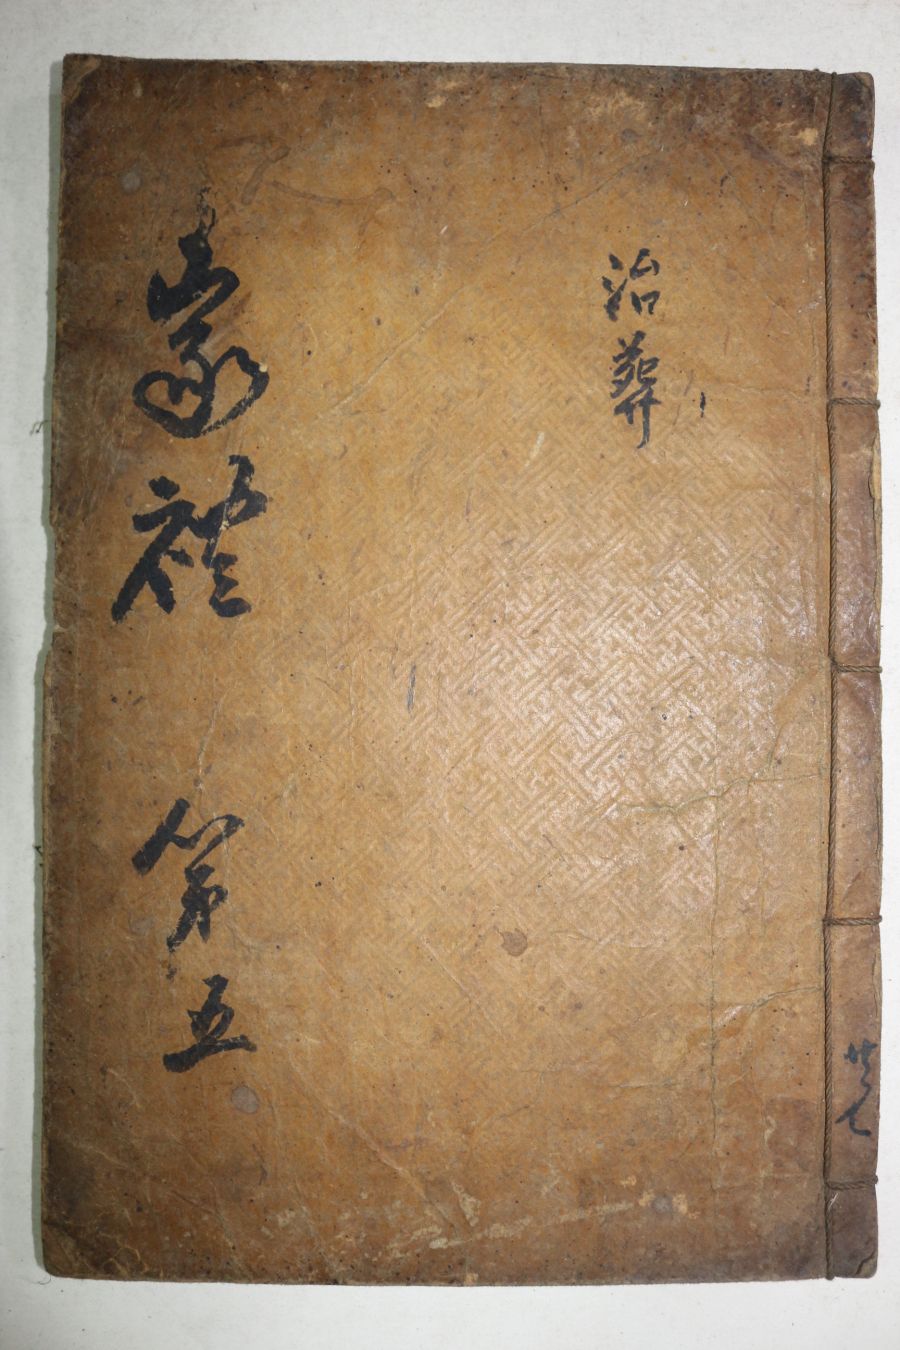 共七
治葬
家禮 第五